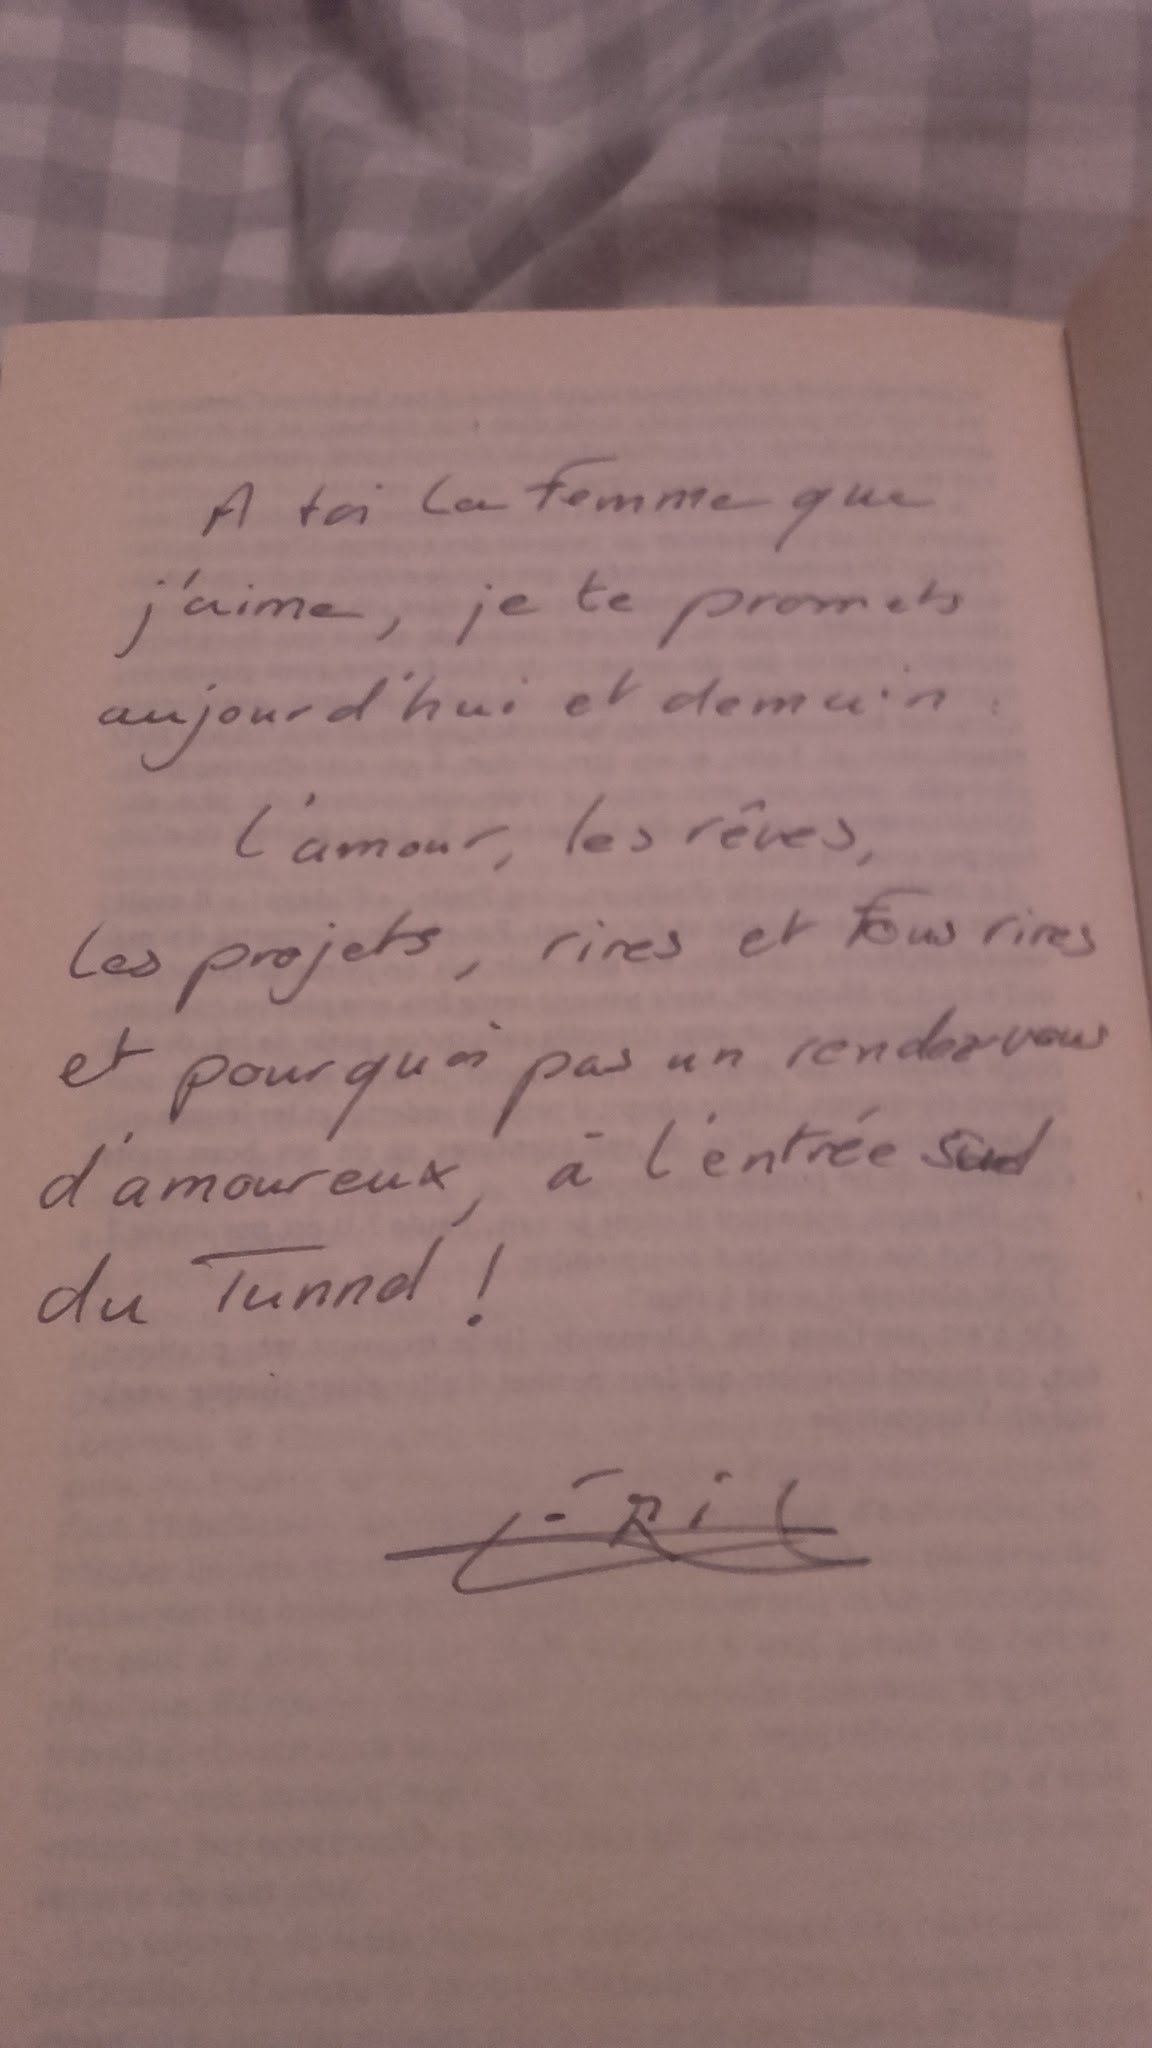 A toi la Femme que
j'aime, je te promets
aujourd'hui et demain :
l'amour, les rêves,
les projets, rires et Fous rires
et pourquoi pas un rendez vous
d'amoureux, à l'entrée Sud
du Tunnel !
ÉRIC